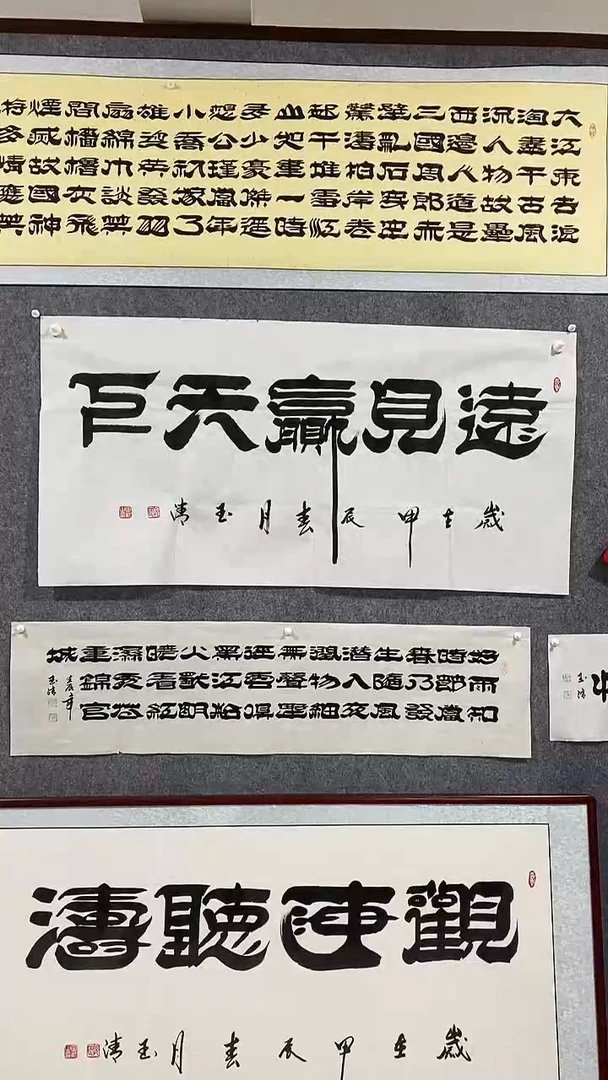 大江東去浪
淘盡千古風
流人物故壘
西邊人道是
三國周郎赤
壁亂石穿空
驚濤拍岸卷
起千堆雪江
山如畫一時
多少豪傑遙
想公瑾當年
小喬初嫁了
雄姿英發羽
扇綸巾談笑
間檣櫓灰飛
煙滅故國神
多情應笑
遠見贏天下
歲在甲辰春月玉清
好雨知
時節當
春乃發
生隨風
潛入夜
潤物細
無聲野
徑雲俱
黑江船
火獨明
曉看紅
濕處花
重錦官
城
辰年
玉清
玉清
觀海聽濤
歲在甲辰春月玉清